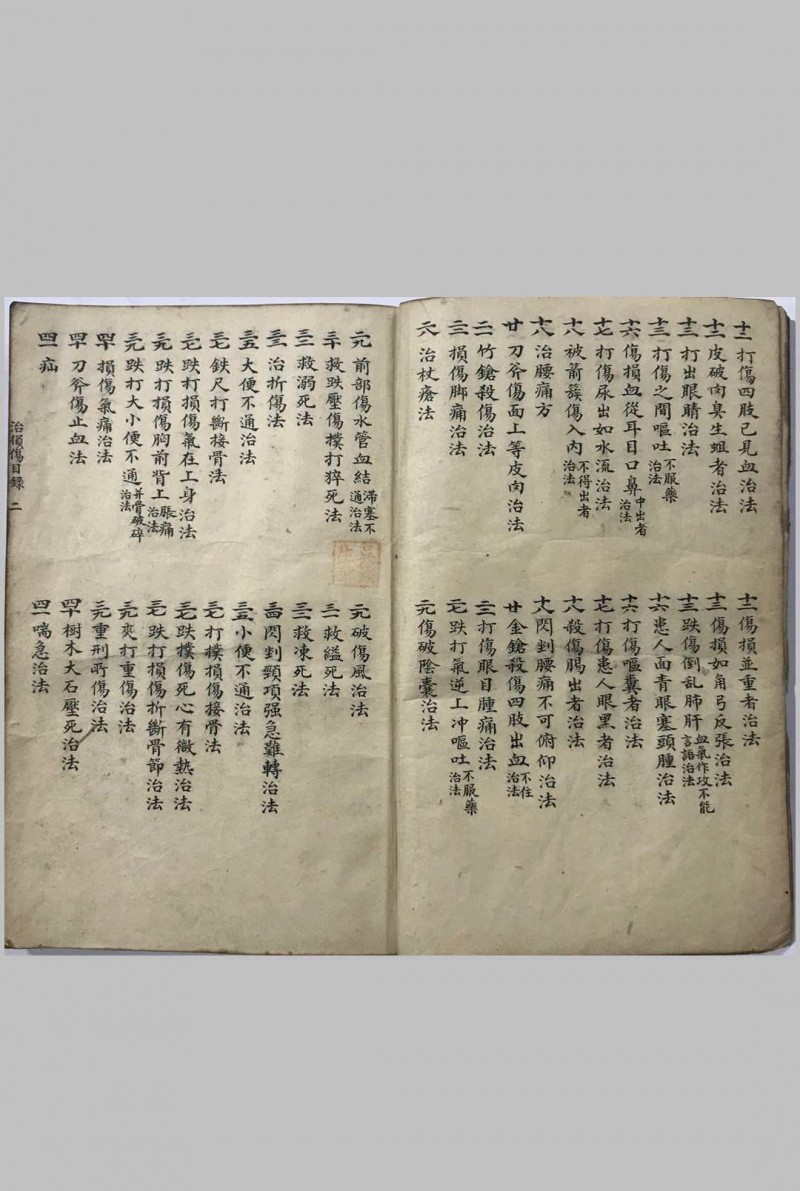 十一 打傷四肢已見血治法
十一 傷損並重者治法
十二 皮破向臭生蛆者治法
十三 傷損如角弓反張治法
十三 打出眼睛治法
十三 跌傷倒乱肺肝血氣作攻不能言語治法
十三 打傷之間嘔吐不服藥治法
十六 患人面青眼塞頭腫治法
十六 傷損血從耳目口鼻中出者治法
十六 打傷嘔糞者治法
十七 打傷尿出如水流治法
十七 打傷患人眼黑者治法
十八 被箭簇傷入內不得出者治法
十八 殺傷腸出者治法
十八 治腰痛方
十八 閃剉腰痛不可俯仰治法
廿 刀斧傷面上等皮向治法
廿 金鎗殺傷四肢出血不住治法
二一 竹鎗殺傷治法
二三 打傷眼目腫痛治法
二三 損傷脚痛治法
二七 跌打氣逆上冲嘔吐不服藥治法
二八 治杖瘡法
二九 傷破陰囊治法
二九 前部傷水管血結滯塞不通治法
二九 破傷風治法
三十 救跌壓傷撲打猝死法
三一 救縊死法
三二 救溺死法
三二 救凍死法
三三 治折傷法
三四 閃剉頸項强急難轉治法
三五 大便不通治法
三五 小便不通治法
三七 鉄尺打斷接骨法
三七 打撲損傷接骨法
三七 跌打損傷氣在上身治法
三七 跌撲傷死心有微熱治法
三九 跌打損傷胸前背上脹痛治法
三七 跌打損傷折斷骨節治法
三九 跌打大小便不通并骨破碎治法
三九 夾打重傷治法
四十 損傷氣痛治法
三九 重刑所傷治法
四十 刀斧傷止血法
四十 樹木大石壓死治法
四一 疝
四一 喘急治法
治損傷目錄 二